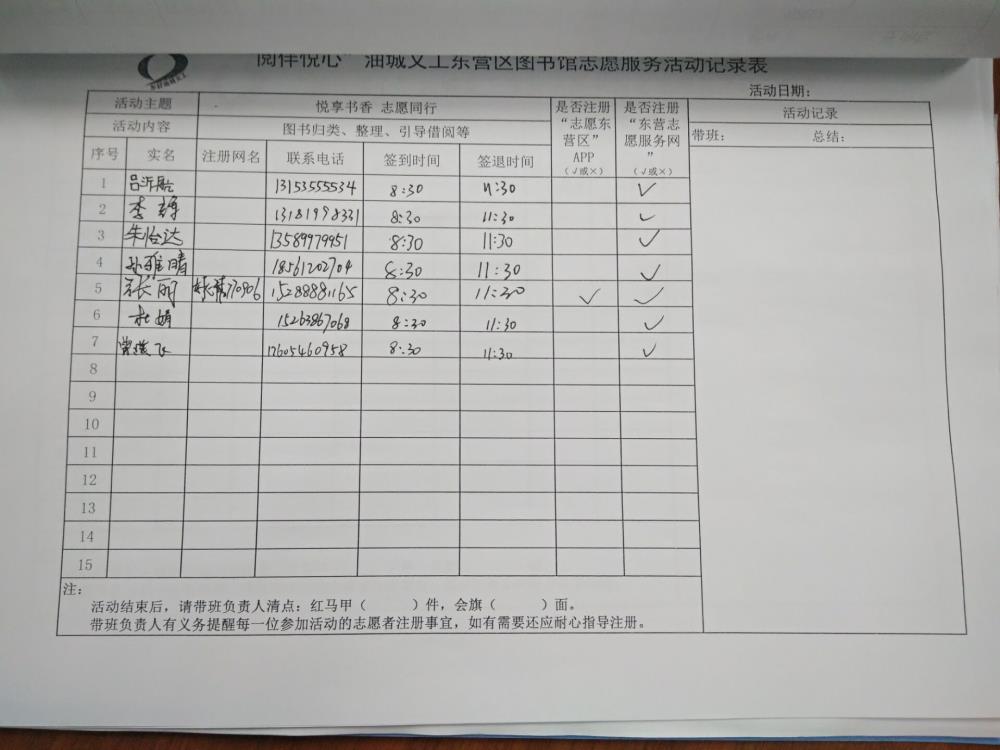 阅伴悦心" 油城义工东营区图书馆志愿服务活动记录表
活动日期:
活动主题 悦享书香 志愿同行 是否注册“志愿东营区”APP(√或×) 是否注册“东营志愿服务网”(√或×) 活动记录
活动内容 图书归类、整理、引导借阅等 带班: 总结:
序号 实名 注册网名 联系电话 签到时间 签退时间
1 13153555534 8:30 11:30 ✓
2 李 13181998331 8:30 11:30 ✓
3 朱怡达 13589979951 8:30 11:30 ✓
4 孙雅晴 18561202704 8:30 11:30 ✓
5 张丽 15288881165 8:30 11:30 ✓ ✓
6 杜娟 15263867068 8:30 11:30 ✓
7 17605460958 8:30 11:30 ✓
8
9
10
11
12
13
14
15
注:
活动结束后，请带班负责人清点: 红马甲（ ）件，会旗（ ）面。
带班负责人有义务提醒每一位参加活动的志愿者注册事宜，如有需要还应耐心指导注册。